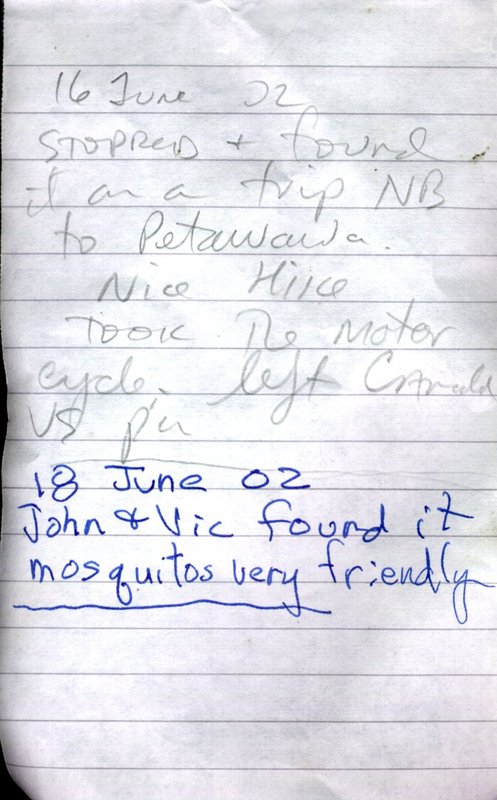 16 June 02
STOPPED + found
it on a trip NB
to Petawawa.
Nice Hike
TOOK The Motor
cycle. left
US pin
18 June 02
John & Vic found it
mosquitos very friendly